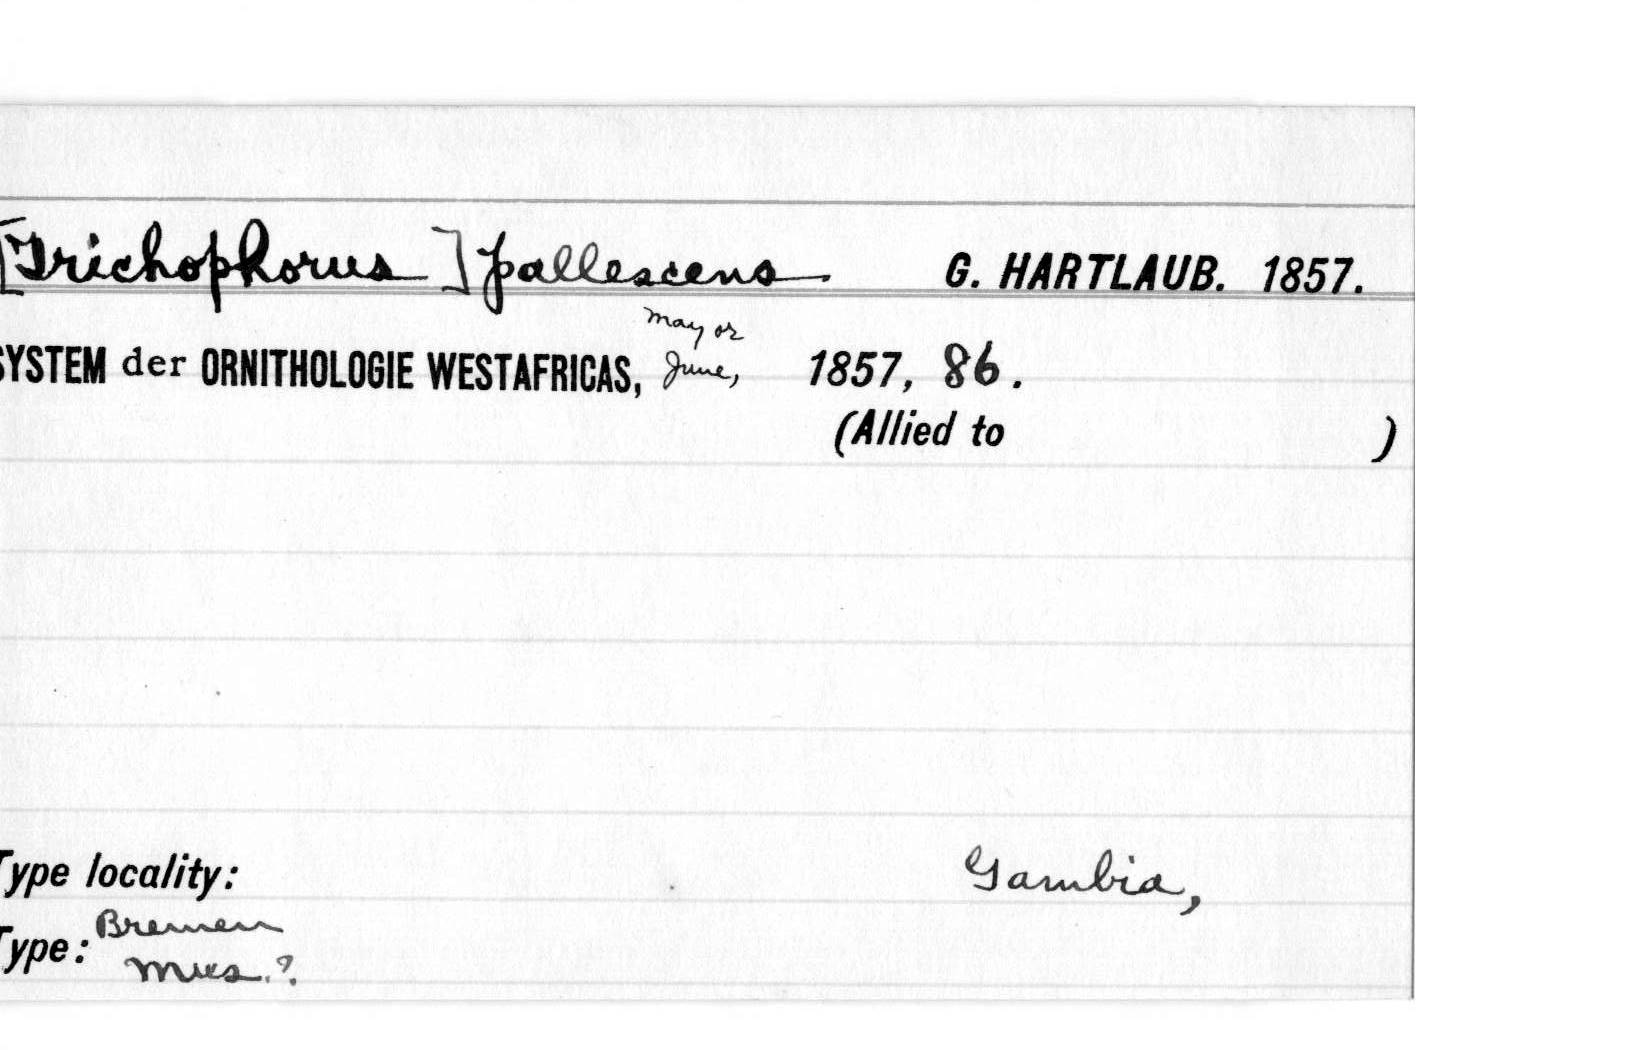 [Trichophorus] pallescens. G. HARTLAUB. 1857.
may or
SYSTEM der ORNITHOLOGIE WESTAFRICAS, June, 1857, 86.
(Allied to )
Type locality: Gambia,
Type: Bremen
Mus.?